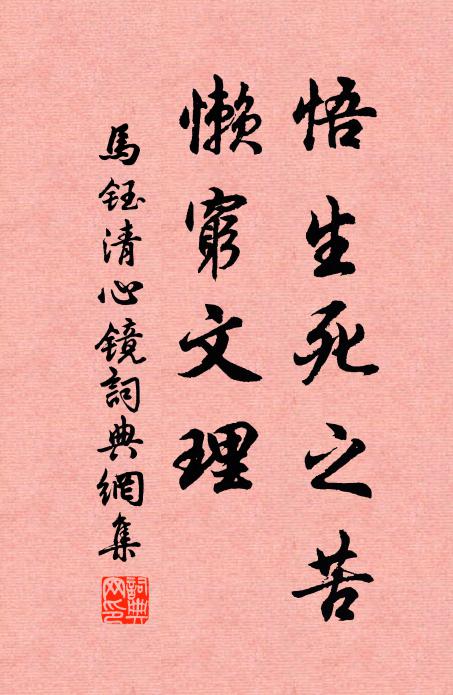 悟生死之苦
懶窮文理
馬鈺清心镜詞典網集
詞典网印